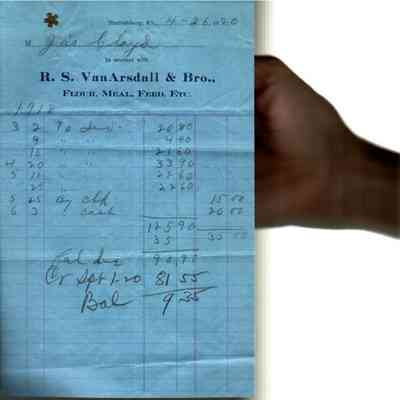 Harrodsburg, Ky., 4-26-1920
M Jas Cloyd
In account with
R. S. VanArsdall & Bro.,
FLOUR, MEAL, FEED, ETC.
1918
3 2 To 20 80
9 " "
15 " " 21 60
4 20 " " 33 90
5 11 " 22 60
25 " 22 60
5 25 By Chk 15 00
6 3 " Cash 20 00
125 90
35 35 00
Bal due 90 90
Cr Sept 1-20 81 55
Bal 9 35